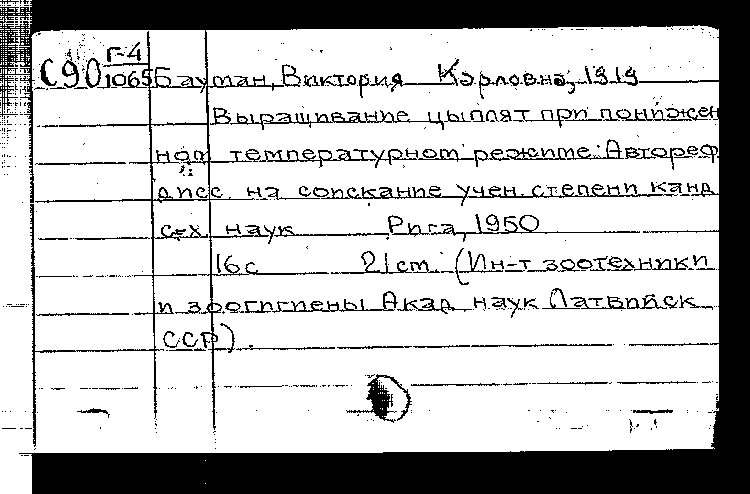 С90 Г-4
1065 Бауман, Виктория Карловна, 1919
Выращивание цыплят при понижен
ном температурном режиме: Автореф
дисс. на соискание учен. степени канд
с-х. наук Рига, 1950
16с 21cm. (Ин-т зоотехники
и зоогигиены Акад наук Латвийск
ССР).